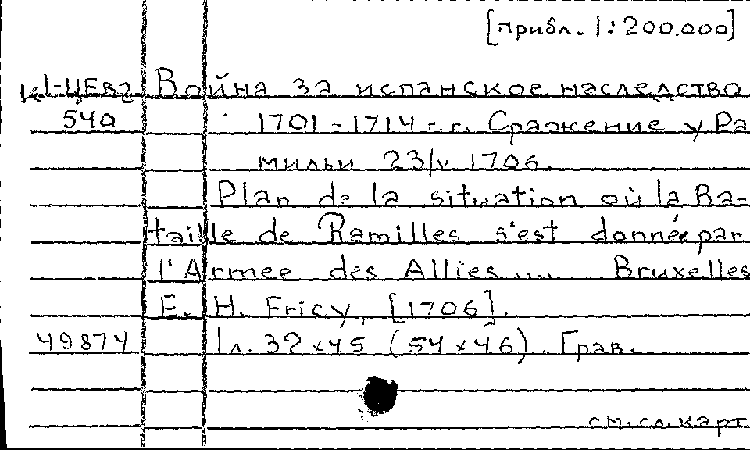 [прибл. 1:200.000]
К1-ЦЕв2 Война за испанское наследство
540 1701-1714-г. Сражение у Ра
мильи 23/V 1706.
Plan de la situation où la Ba-
taille de Ramilles s'est donnée par
l'Armee des Allies.... Bruxelles
E. H. Fricy, [1706].
49874 1л. 32x45 (54x46). Грав.
см. сл. карт